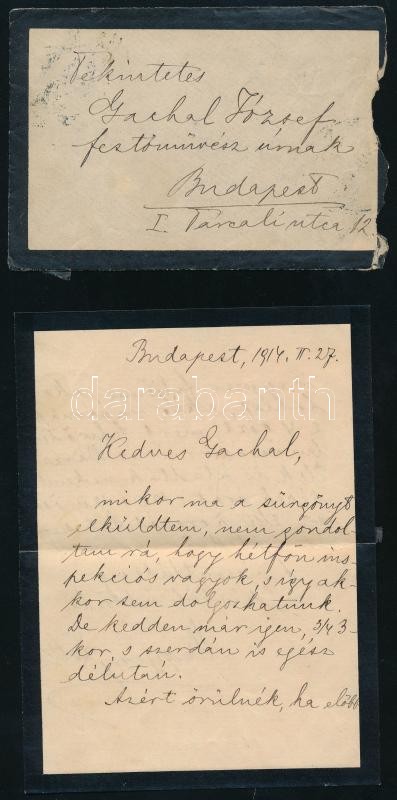 Tekintetes
Gachal József
festőművész úrnak
Budapest
I. Tarcali utca 12
Budapest, 1914. II. 27.
darabanth
Kedves Gachal,
mikor ma a sürgönyt
elküldtem, nem gondol-
tam rá, hogy hétfőn ins-
pekciós vagyok, s így ak-
kor sem dolgozhatunk.
De kedden már igen, 3/4 3-
kor, s szerdán is egész
délután.
Azért örülnék, ha előbb